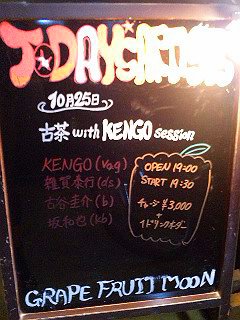 TODAY'S ARTISTS
10月25日
古茶 with KENGO session
KENGO (Vo,g)
雑賀泰行 (ds)
古谷圭介 (b)
坂和也 (kb)
OPEN 19:00
START 19:30
チャージ ¥3,000
+
1ドリンクオーダー
GRAPE FRUIT MOON